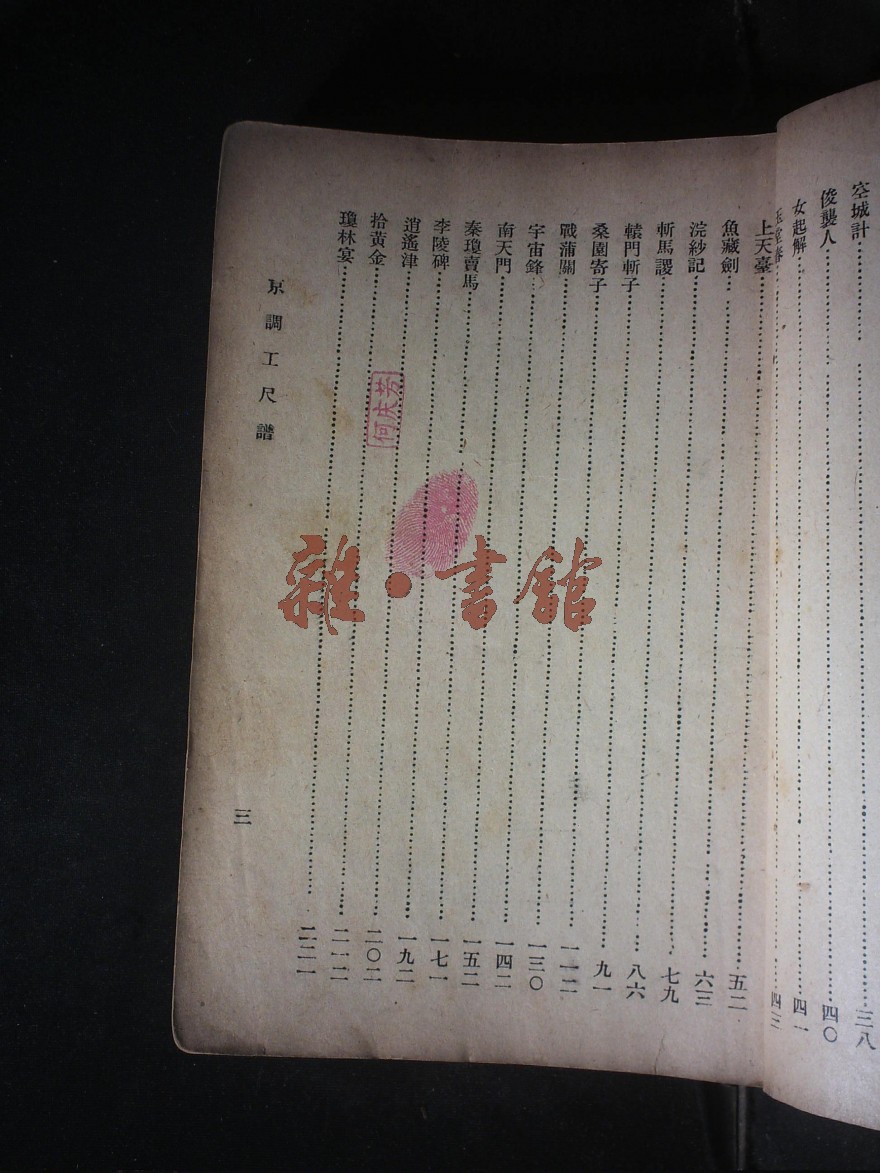 空城計……三八
俊襲人……四〇
女起解……四一
玉堂春……四三
上天臺……五二
魚藏劍……六三
浣紗記……七九
斬馬謖……八六
轅門斬子……九一
桑園寄子……一一二
戰蒲關……一三〇
宇宙鋒……一四二
南天門……一五二
秦瓊賣馬……一七一
李陵碑……一九二
逍遙津……二〇二
拾黃金……二一二
瓊林宴……二二一
京調工尺譜
三
何庆芳
雜·書館